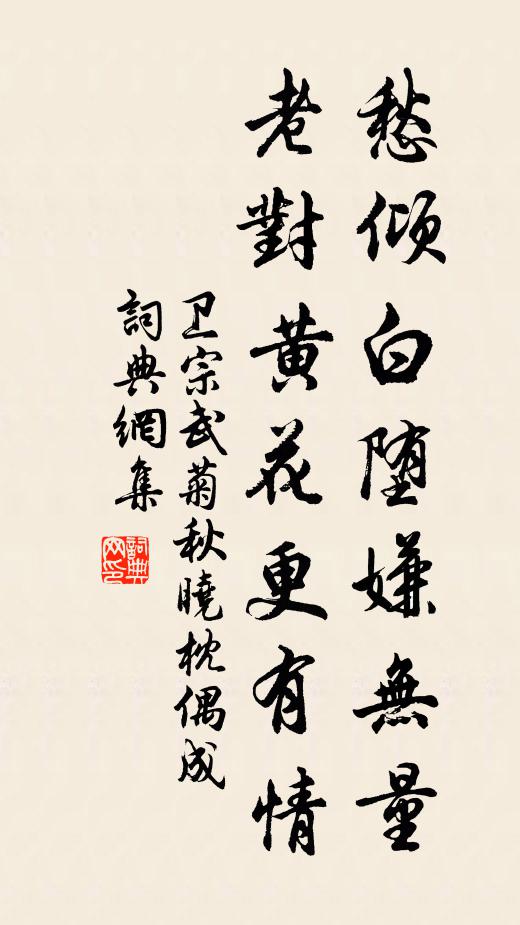 愁傾白堕嫌無量
老對黄花更有情
卫宗武菊秋曉枕偶成
詞典網集
詞典网印